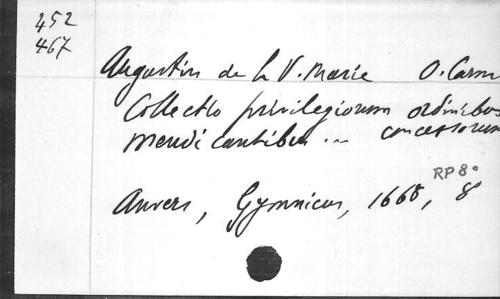 452
467
Augustin de la V. Marie O. Carm
Collectio privilegiorum ordinibus
mendicantibus ... concessorum
RP 8°
Anvers, Gymnicus, 1668, 8°